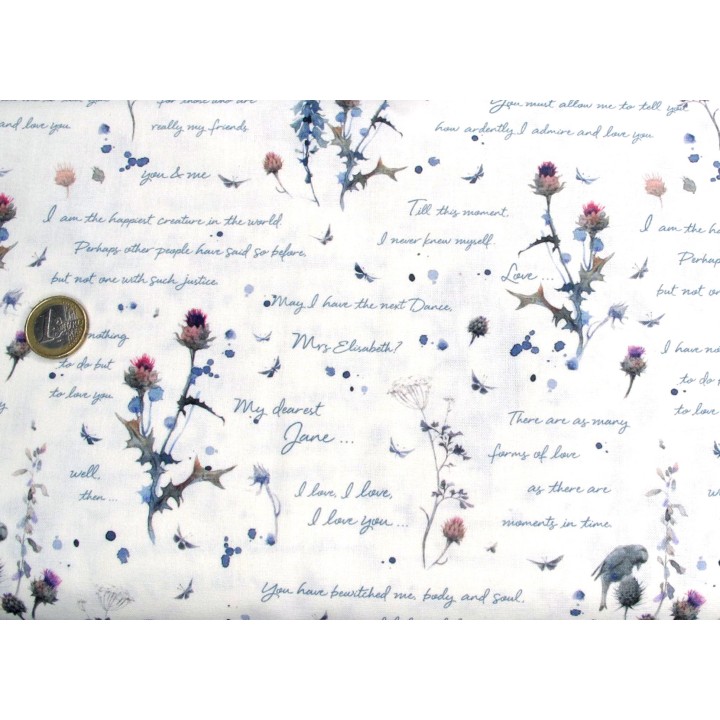 for those who are
You must allow me to tell you
and love you.
really my friends.
how ardently I admire and love you.
you & me
I am the happiest creature in the world.
Perhaps other people have said so before,
but not one with such justice.
Till this moment
I never knew myself.
Love ...
I am the ha
Perhap
but not on
May I have the next Dance,
Mrs Elisabeth?
nothing
to do but
to love you.
I have no
to do
to love
My dearest
Jane ...
There are as many
forms of love
as there are
moments in time.
well,
then ...
I love, I love,
I love you ...
You have bewitched me, body and soul,